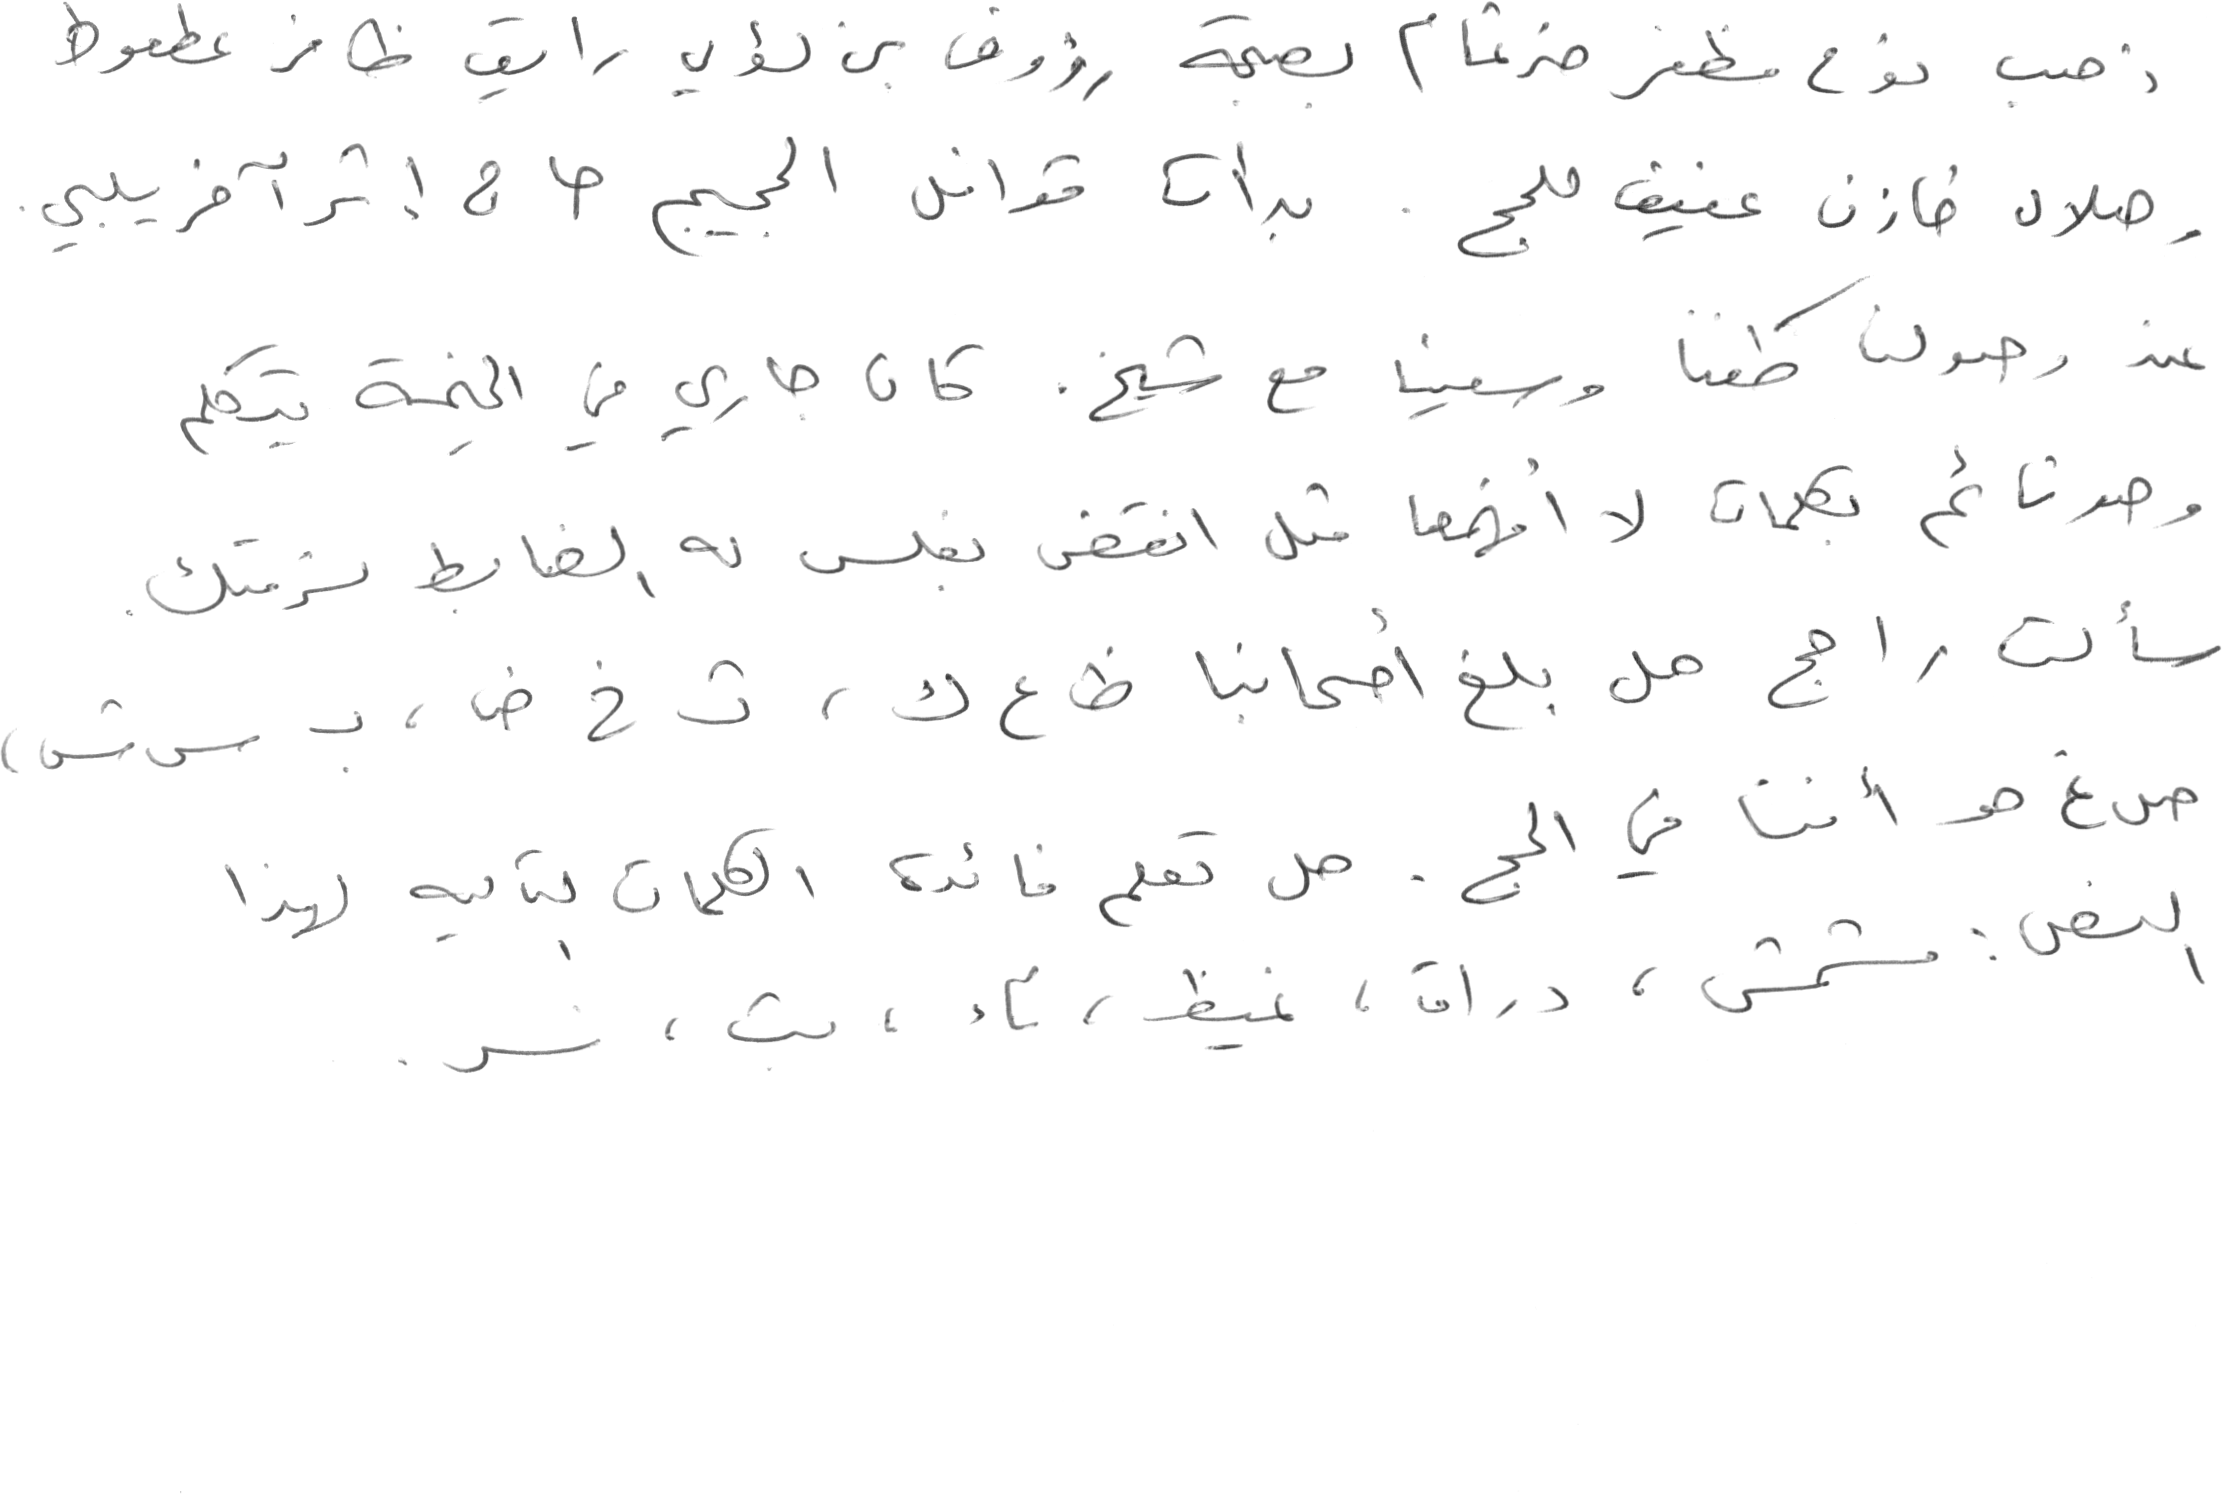 ذهب نوح مظفر ضرغام بصحبة رؤوف بن لؤي رايق ظافر عطعوط
وهلال خازن عفيف للحج . بدأت قوافل الحجيج حاج إثر آخر يلبي.
عند وصولنا طفنا وسعينا مع شيخ . كان جاري في الخيمة يتكلم
وهو نائم بكلمات لا أفهمها مثل انقض بفلس له الضابط سنرمتك.
سألت راجح هل بلغ أصحابنا ظ ع ك ، ث خ ض ، ب س ش ،
ص غ هو أننا في الحج . هل تعلم فائدة الكلمات التاليه لهذا
النص : مشمش ، دراق ، غيظ ، ، بث ، نسر .